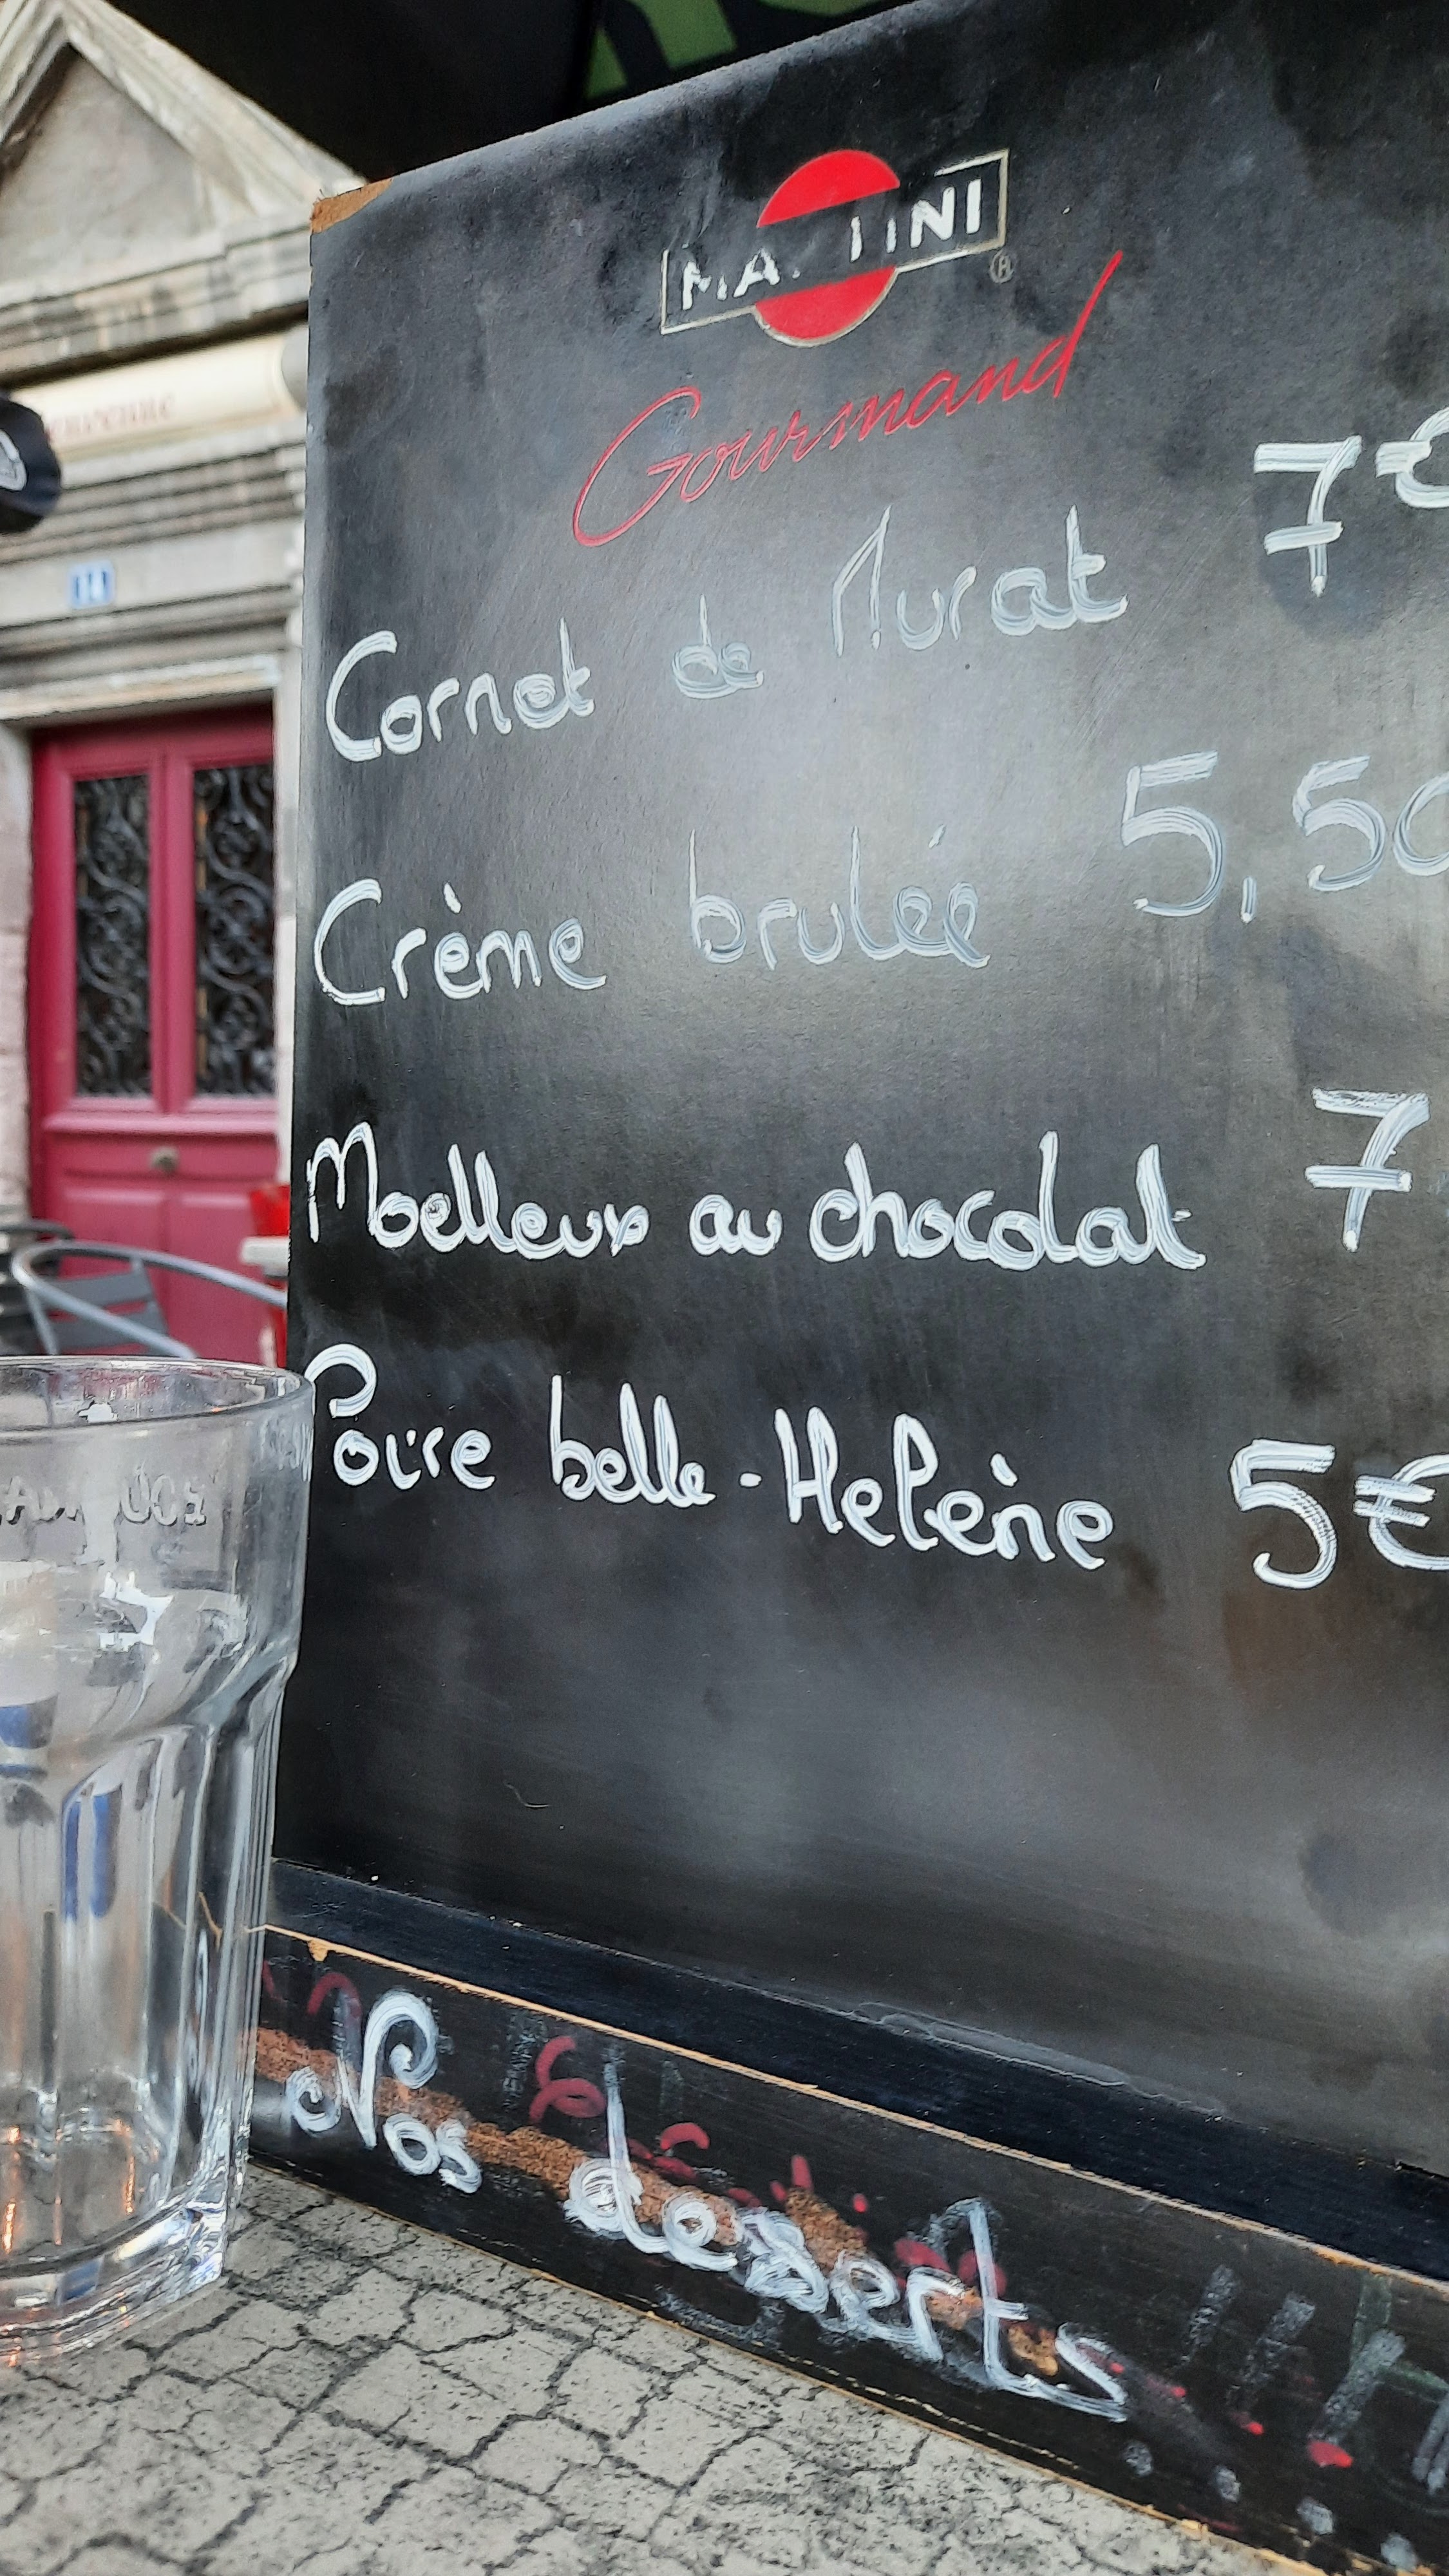 MARTINI
®
Gourmand
Cornet de Murat 7€
Crème brulée 5,50
Moelleux au chocolat 7
Poire belle-Helène 5€
Nos desserts
14